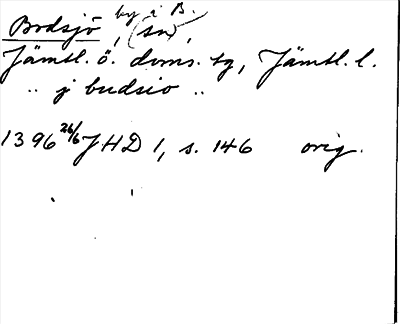 Bodsjö, by i B. (sn),
Jämtl. ö. doms. tg, Jämtl. l.
" j budsio "
1396 26/6 JHD 1, s. 146 orig.